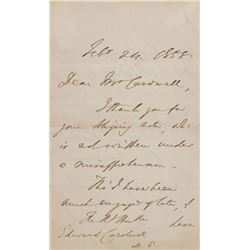 Feb. 24. 1858.
Dear Mr Cardwell,
I thank you for
your obliging note, wh. is
is not written under
a misapprehension.
Tho' I have been
much engaged of late, I
have
The Rt Hon
Edward Cardwell
M. P.